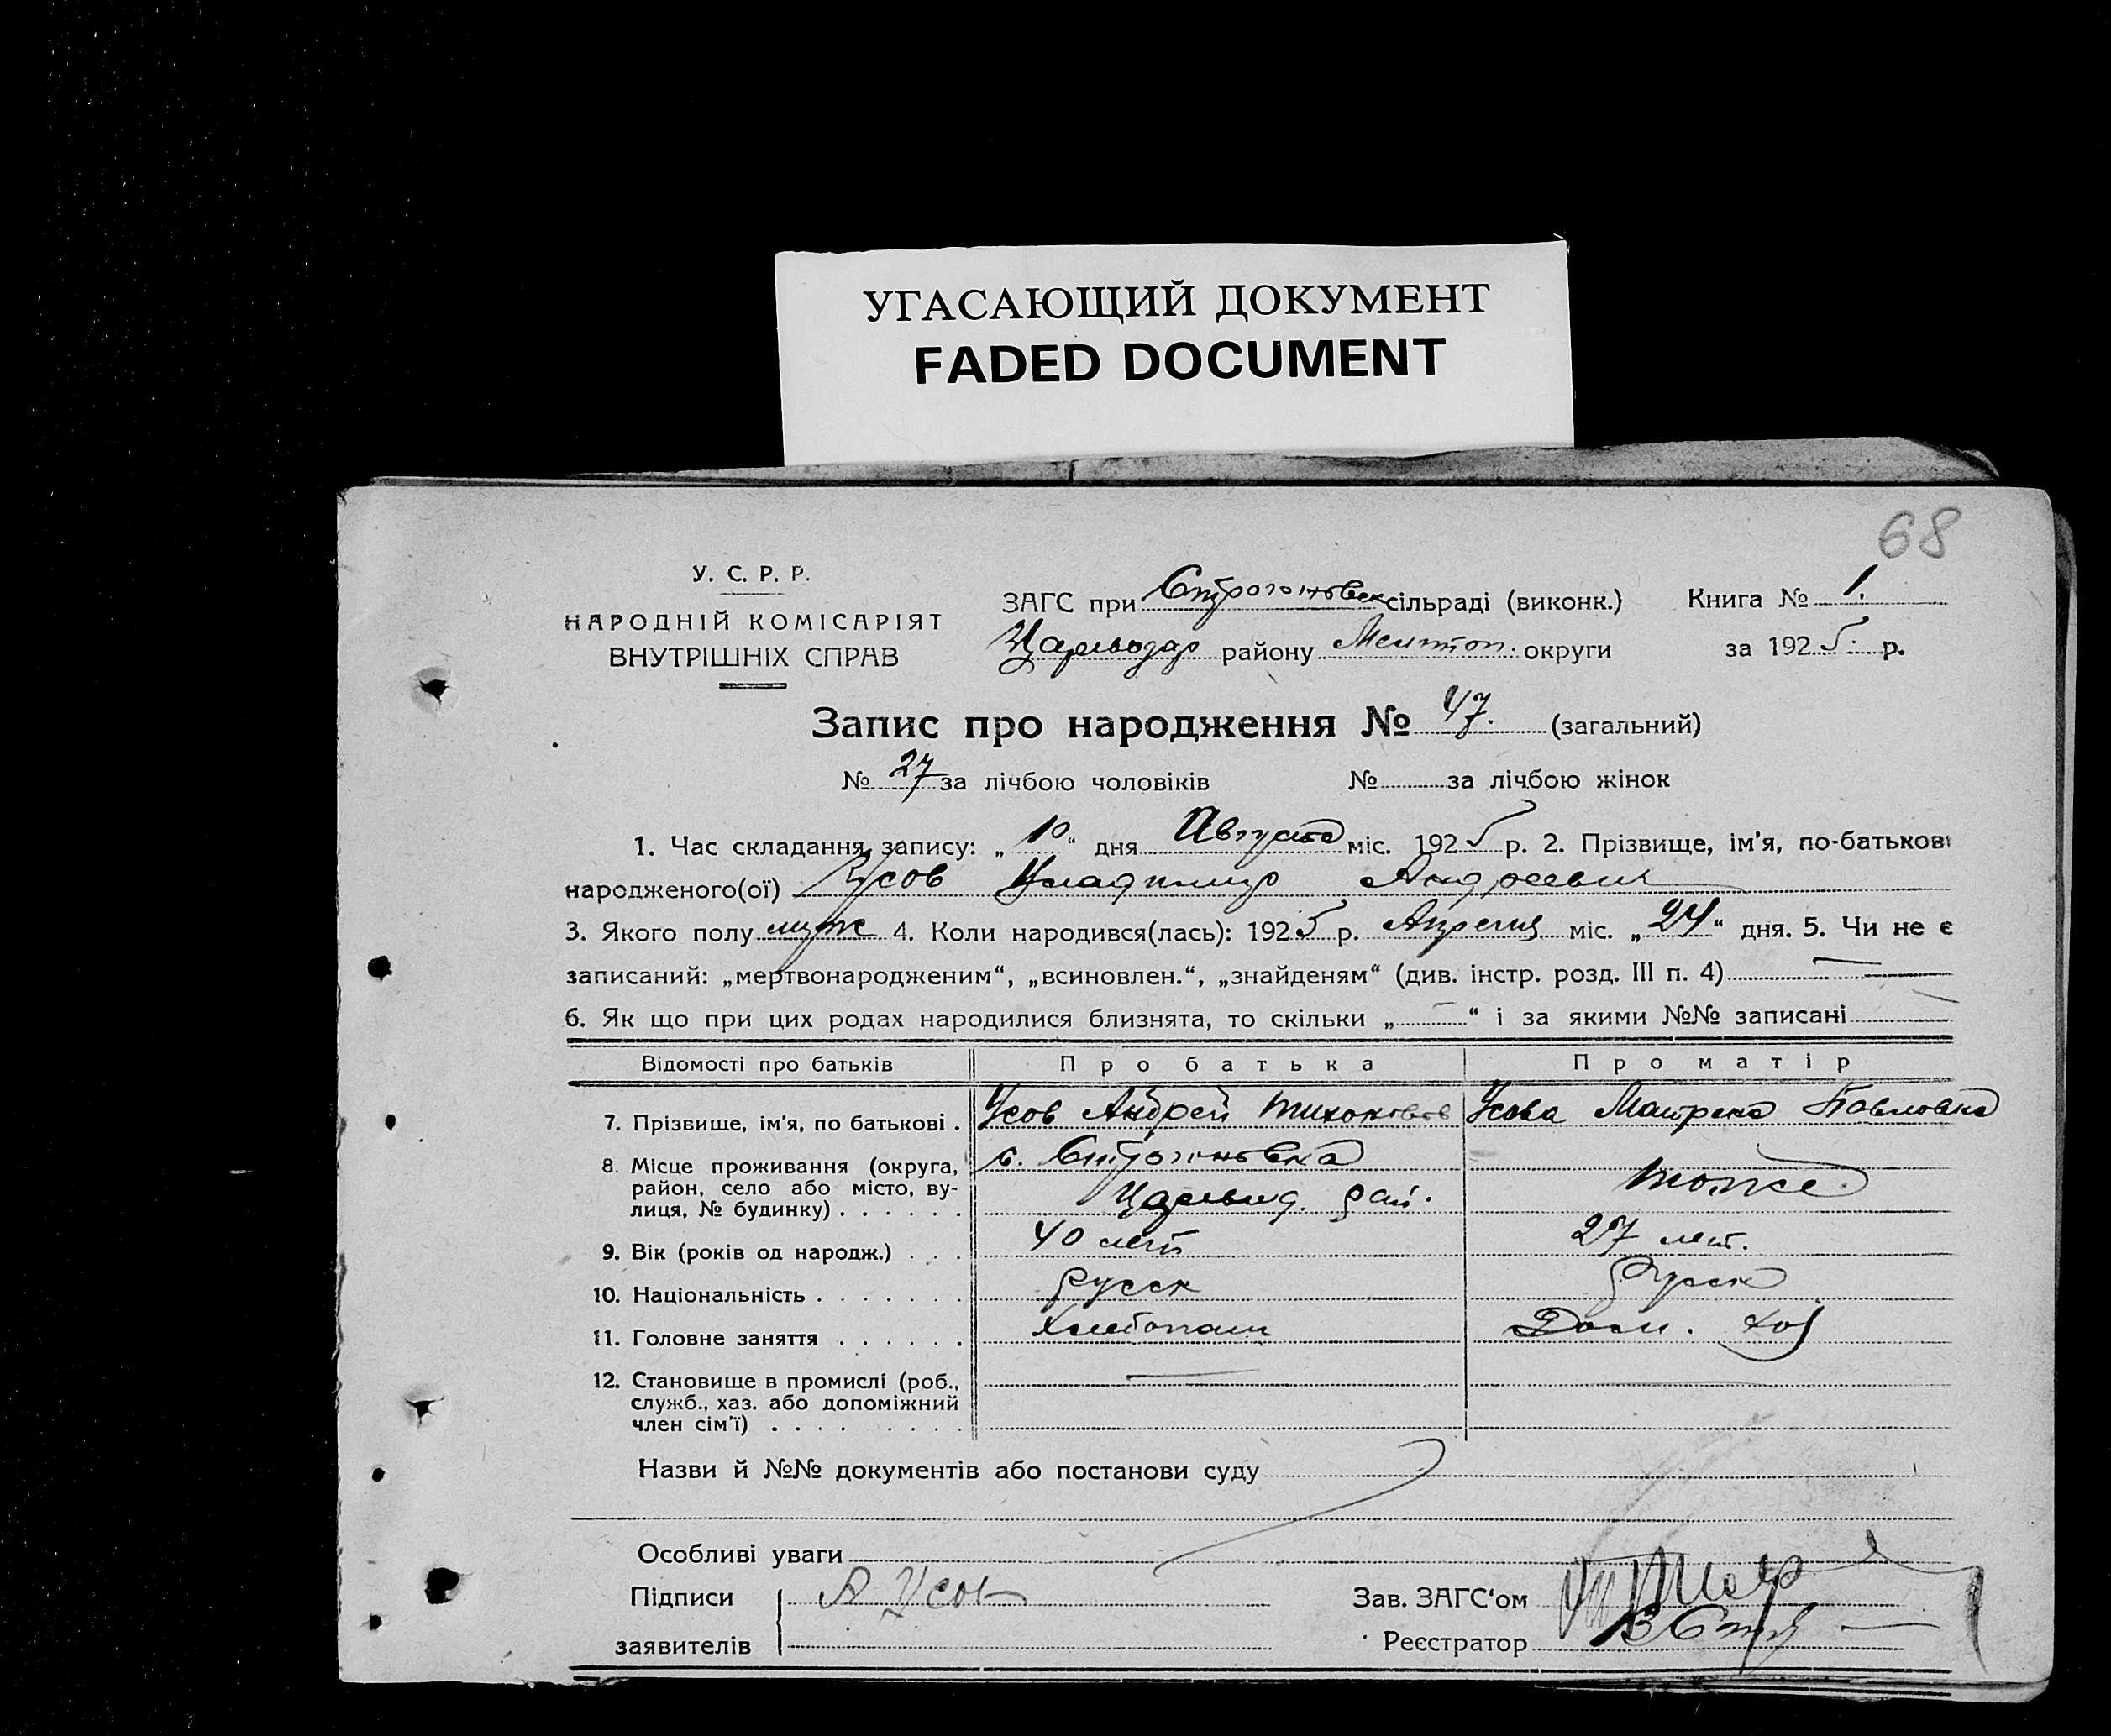 УГАСАЮЩИЙ ДОКУМЕНТ
FADED DOCUMENT
68
У. С. Р. Р.
НАРОДНІЙ КОМІСАРІЯТ
ВНУТРІШНІХ СПРАВ
ЗАГС при Строгоновск сільраді (виконк.) Книга № 1.
району Мелитоп. округи за 1925 р.
Запис про народження № 47. (загальний)
№ 27 за лічбою чоловіків № за лічбою жінок
1. Час складання запису: „10“ дня Августа міс. 1925 р. 2. Прізвище, ім'я, по-батькові
народженого(ої) Усов Владимир Андреевич
3. Якого полу муж 4. Коли народився(лась): 1925 р. Апреля міс. „24“ дня. 5. Чи не є
записаний: „мертвонародженим“, „всиновлен.“, „знайденям“ (див. інстр. розд. III п. 4) —
6. Як що при цих родах народилися близнята, то скільки „—“ і за якими №№ записані —
Відомості про батьків Про батька Про матір
7. Прізвище, ім'я, по батькові . Усов Андрей Тихонов Усова Матрена Павловна
8. Місце проживання (округа, с. Строгоновка
район, село або місто, ву- рай. тоже
лиця, № будинку) . . . . . .
9. Вік (років од народж.) . . . 40 лет 27 лет.
10. Національність . . . . . . . русск русск
11. Головне заняття . . . . . . Хлебопаш Дом. хоз
12. Становище в промислі (роб., —
служб., хаз. або допоміжний
член сім'ї) . . . . . . . . .
Назви й №№ документів або постанови суду
Особливі уваги
Підписи А Усов Зав. ЗАГС'ом
заявителів Реєстратор